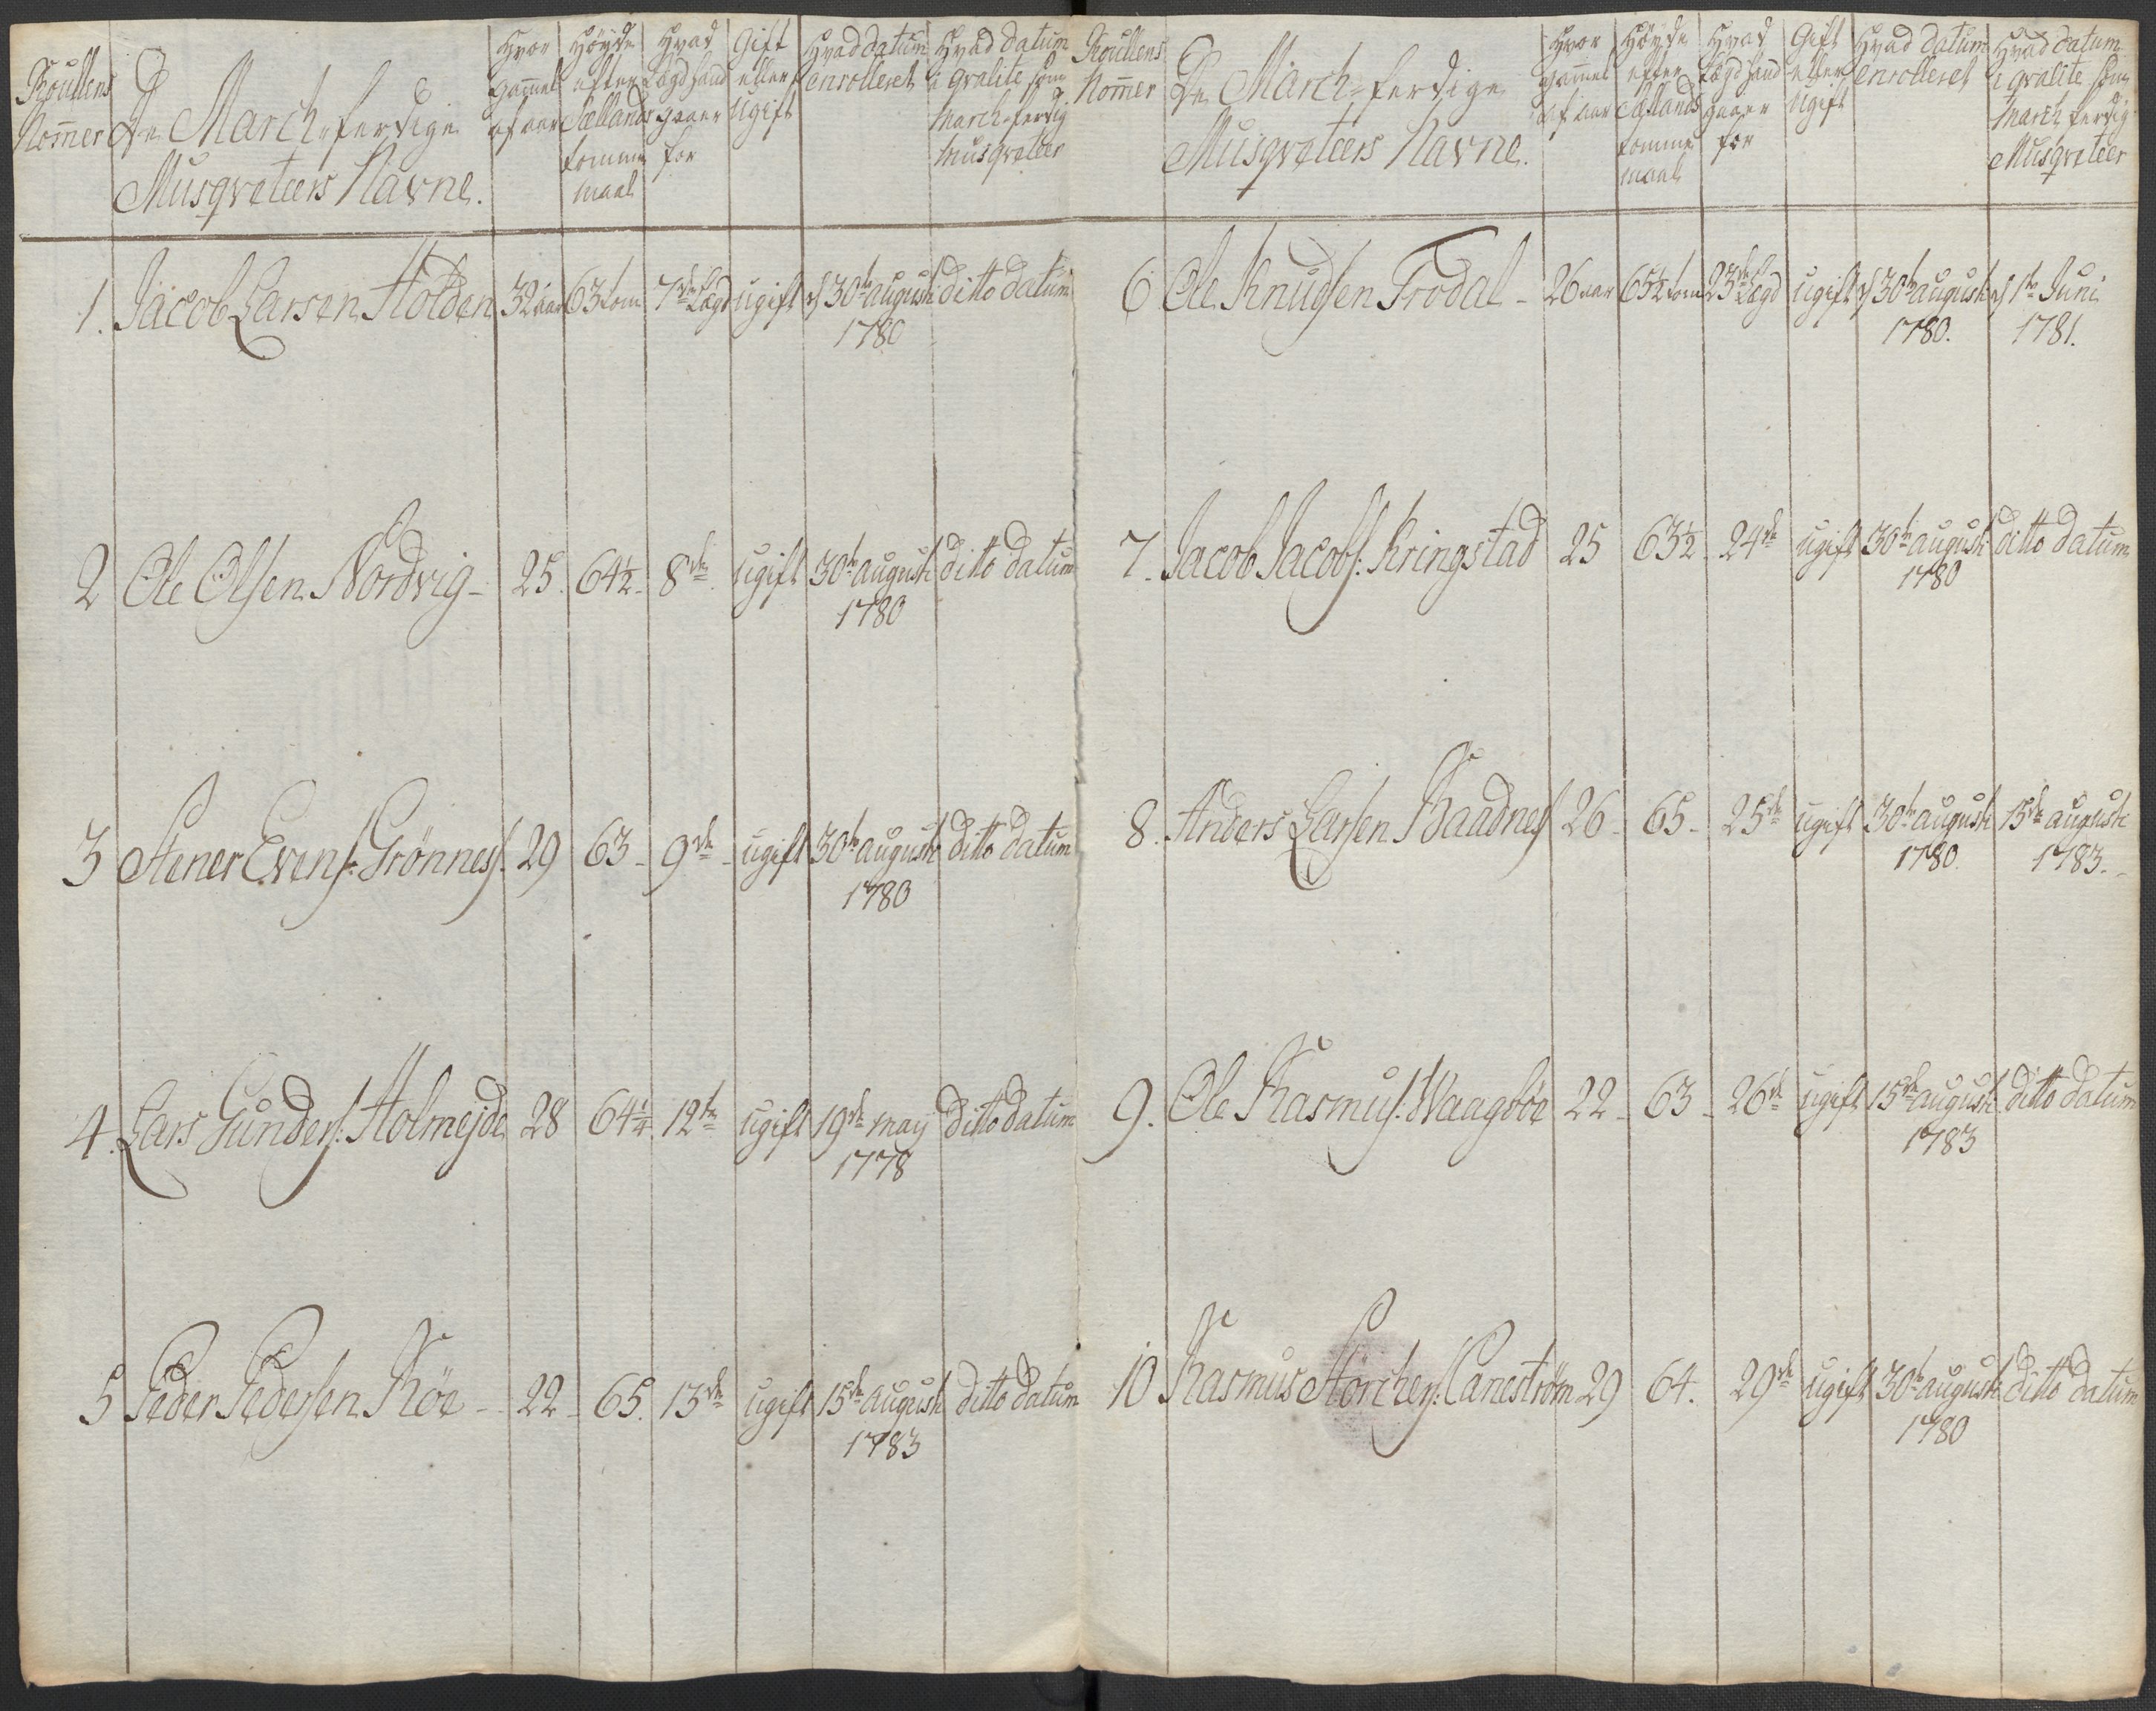 Roullens Nom̄er
De March-ferdige Musqveteers Navne.
Hvor gam̄el af aar
Höyde efter Sællands tomme maal
Hvad Lægd hand gaaer for
Gift eller Ugift
Hvad datum enrolleret
Hvad datum i qvalite som March-ferdig Musqveteer
1. Jacob Larsen Holden 32 aar 63 tom 7de Lægd ugift d 30te august 1780 ditto datum
2 Ole Olsen Nordvig - 25. 64½ - 8de ugift 30te august 1780 ditto datum
3 Stener Evens: Grönnes 29 63 - 9de - ugift 30te august 1780 ditto datum
4. Lars Gunders: Holmejde 28 64¼ 12te ugift 19de may 1778 ditto datum
5 Peder Pedersen Röe - 22 - 65. 13de ugift 15de august 1783 ditto datum
Roullens Nom̄er
De March-ferdige Musqveteers Navne.
Hvor gam̄el af aar
Höyde efter Sællands tomme maal
Hvad Lægd hand gaaer for
Gift eller Ugift
Hvad datum enrolleret
Hvad datum i qvalite som March ferdig Musqveteer
6 Ole Knudsen Frodal - 26 aar 65½ tom 23de Lægd ugift d 30te august 1780. d 1te Juni 1781.
7. Jacob Jacobs: Kringstad 25 63½ - 24de ugift 30te august 1780 ditto datum
8. Anders Larsen Baadnes 26 - 65 - 25de ugift 30te august 1780. 15de august 1783. -
9. Ole Rasmus: Waagböe 22 - 63 - 26de ugift 15de august 1783 ditto datum
10 Rasmus Störchers: Caneström 29 64. 29de ugift 30te august 1780 ditto datum